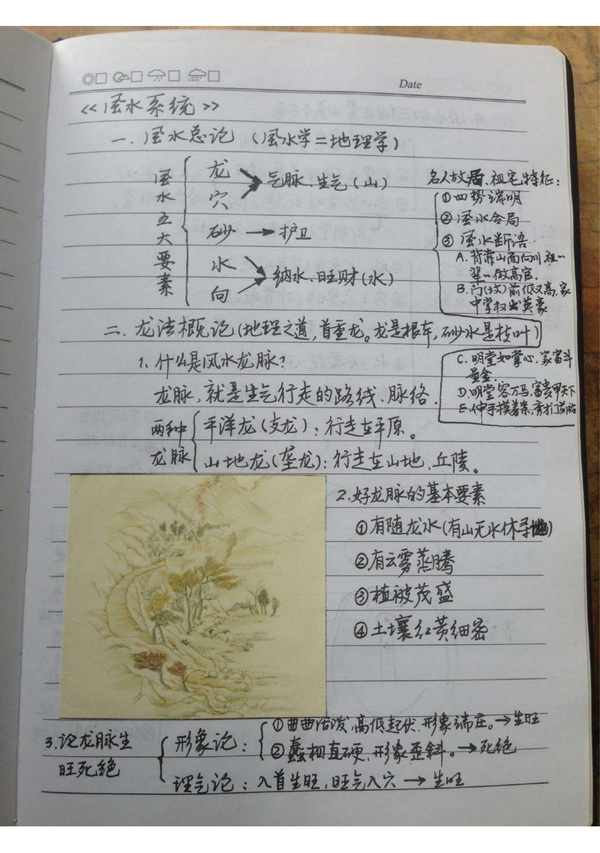 Date
《风水系统》
一、风水总论（风水学=地理学）
风水五大要素
龙
穴
气脉、生气（山）
砂 → 护卫
水
向
纳水、旺财（水）
名人故居、祖宅特征：
①四势端明
②风水合局
③风水断语
A.背靠山面向川
做高官.
B.门前低又高,家
中掌权出英豪
二、龙法概论（地理之道,首重龙。龙是根本,砂水是枝叶）
1.什么是风水龙脉？
龙脉,就是生气行走的路线、脉络.
C.明堂如掌心、家富斗
量金
D.明堂容万马,富贵甲天下
E.伸手摸着案,
两种龙脉
平洋龙(支龙)：行走在平原。
山地龙(垄龙)：行走在山地、丘陵。
2.好龙脉的基本要素
①有随龙水(有山无水休寻地)
②有云雾蒸腾
③植被茂盛
④土壤红黄细密
3.论龙脉生旺死绝
形象论：
①曲曲活泼,高低起伏,形象端庄。→生旺
②蠢粗直硬,形象歪斜。→死绝
理气论：入首生旺,旺气入穴 → 生旺